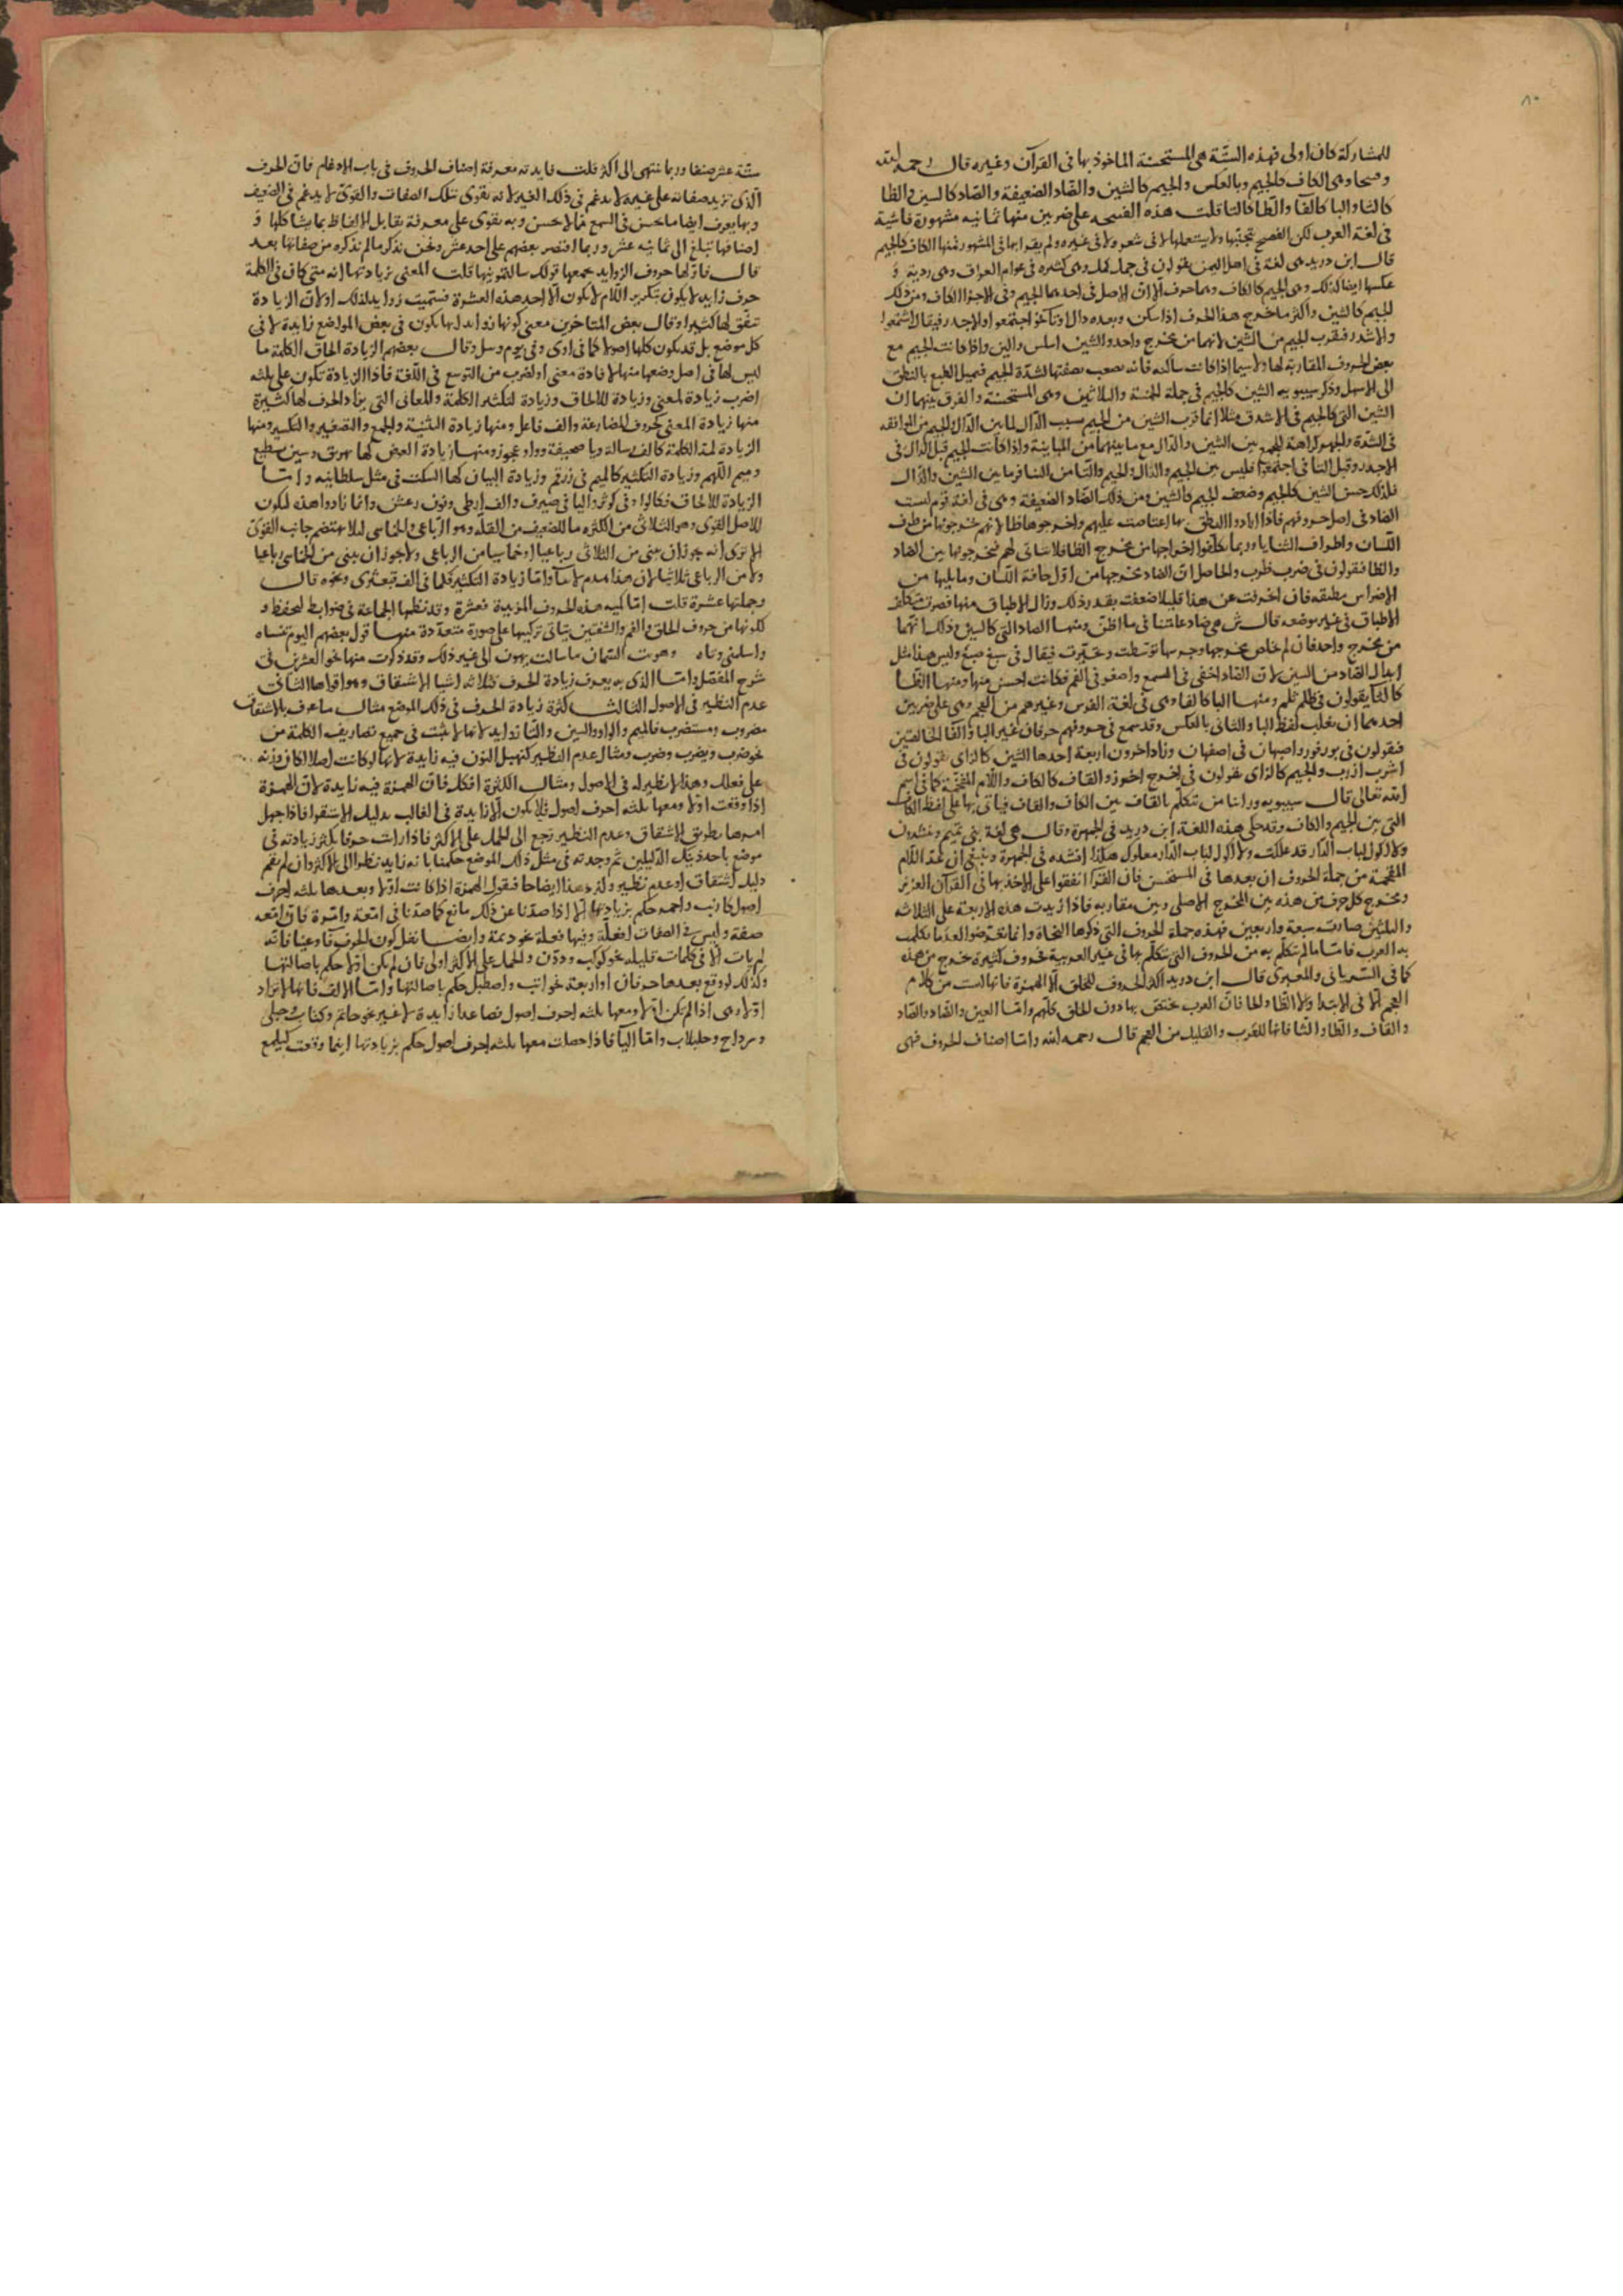 ٨٠
للمشاركة كان اولى فهذه الستة هى المستحسنة الماخوذ بها فى القرآن وغيره قال رحمه الله
وصحا وهى الكاف كالجيم وبالعكس والجيم كالشين والضاد الضعيفة والصاد كالسين والظا
كالثا والبا كالفا والطا كالتا قلت هذه القسمه على ضربين منها ثمانيه مشهورة فاشية
فى لغة العرب لكن الفصيح يتجنبها ولا يستعملها لا فى شعر ولا فى غيره ولم يقرا بها فى المشهور فمنها الكاف كالجيم
قال ابن دريد هى لغة فى اهل اليمن يقولون فى جمل كمل وهى كثيره فى عوام العراق وهى ردية و
عكسها ايضا كذلك وهى الجيم كالكاف وهما حرف الا ان الاصل فى احدهما الجيم وفى الاخر الكاف ومن ذلك
الجيم كالشين واكثر ما خرج هذا الحرف اذا سكن وبعده دال او تا نحو اجتمعوا والاجدر فيقال اشتمعوا
والاشدر فقرب الجيم من الشين لانهما من مخرج واحد والشين اسلس والين واذا كانت الجيم مع
بعض الحروف المقاربة لها ولا سيما اذا كانت ساكنه فانه يصعب بصفتها لشدة الجيم فيميل الطبع بالنطق
الى الاسهل وذكر سيبويه الشين كالجيم فى جملة الخمسة والثلاثين وهى المستحسنة والفرق بينهما ان
الشين التى كالجيم فى الاشدق مثلا انما قرب الشين من الجيم بسبب الدال لما بين الدال والجيم من الموافقه
فى الشدة والجهر كراهة الجمع بين الشين والدال مع ما بينهما من المباينة واذا كانت الجيم قبل الدال فى
الاجدر وقبل التا فى اجتمعوا فليس بين الجيم والدال والجيم والتا من التنافر ما بين الشين والدال
فلذلك حسن الشين كالجيم وضعف الجيم كالشين ومن ذلك الضاد الضعيفة وهى فى لغة قوم ليست
الضاد فى اصل حروفهم فاذا ارادوا النطق بها اعتاصت عليهم واخرجوها ظا لانهم يخرجونها من طرف
اللسان واطراف الثنايا وربما تكلفوا اخراجها من مخرج الظا فلا يتاتى لهم فخرجونها بين الضاد
والظا فيقولون فى ضرب ظرب والحاصل ان الضاد مخرجها من اول حافة اللسان وما يليها من
الاضراس مطبقه فان انحرفت عن هذا قليلا ضعفت بقدر ذلك وزال الاطباق منها فصرت متكلف
الاطباق فى غير موضعه قال ش هى ضاد عامتنا فى ما اظن ومنها الصاد التى كالسين وذلك انهما
من مخرج واحد فان لم خاص مخرجها وجرسها توسطت وتحيرت فيقال فى سبغ صبغ وليس هذا مثل
ابدال الصاد من السين لان الصاد اخفى فى السمع واصفو فى الفم فكانت احسن منها ومنها الظا
كالثا يقولون فى ظلم ثلم ومنها البا كالفا وهى فى لغة الفرس وغيرهم من العجم وهى على ضربين
احدهما ان يغلب لفظ البا والثانى بالعكس وقد سمع فى حروفهم حرفان غير البا والفا الخالصتين
فيقولون فى بور فور واصبهان فى اصفهان وزاد اخرون اربعة احدها الشين كالزاى يقولون فى
اشرب ازرب والجيم كالزاى يقولون فى اخرج اخرز والقاف كالكاف واللام المفخمة كما فى اسم
الله تعالى قال سيبويه وراينا من يتكلم بالقاف بين الكاف والقاف فياتى بها على لفظ الكاف
التى بين الجيم والكاف وقد حكى هذه اللغة ابن دريد فى الجمهرة وقال هى لغة بنى تميم وينشدون
ولا اكول لباب الدار قد غلكت ولا اكول لباب الدار مغلوك هكذا انشده فى الجمهرة وينبغى ان تعد اللام
المفخمة من جملة الحروف ان بعدها فى المستحسن فان القرا اتفقوا على الاخذ بها فى القرآن العزيز
ومخرج كل حرف من هذه بين المخرج الاصلى وبين مقاربه فاذا زيدت هذه الاربعة على الثلاثه
والثلثين صارت سبعة واربعين فهذه جملة الحروف التى ذكرها النحاة وانما تعرضوا لعد ما تكلمت
به العرب فاما ما لم تتكلم به من الحروف التى تتكلم بها فى غير العربية فحروف كثيرة خرج من هذه
كما فى السريانى والعبرى قال ابن دريد اكثر الحروف للحلق الا الهمزة فانها ليست من كلام
العجم الا فى الابتدا ولا الظا والحا فان العرب تختص بها دون الخلق كلهم واما العين والضاد والصاد
والقاف والطا والثا فانها للعرب والقليل من العجم قال رحمه الله واما اصناف الحروف فهى
ستة عشر صنفا وربما تنتهى الى اكثر قلت فايدته معرفة اصناف الحروف فى باب الادغام فان الحرف
الذى تزيد صفاته على غيره لا يدغم فى ذلك الغير لانه تقوى بتلك الصفات والقوى لا يدغم فى الضعيف
وبها يعرف ايضا ما يحسن فى السمع مما لا يحسن وبه يقوى على معرفة تقابل الالفاظ بما يشاكلها و
اصنافها تبلغ الى ثمانية عشر وربما اقتصر بعضهم على احد عشر ونحن نذكر ما لم نذكره من صفاتها بعد
قال فاولها حروف الزوايد يجمعها قولك سالتمونيها قلت المعنى بزيادتها انه متى كان فى الكلمة
حرف زايد لا يكون بتكرير اللام لا يكون الا احد هذه العشرة فسميت زوايد لذلك او لان الزيادة
تتفق لها كثيرا وقال بعض المتاخرين معنى كونها زوايد انها تكون فى بعض المواضع زايدة لا فى
كل موضع بل قد يكون كلها اصولا كما فى اوى وفى يوم وسل وقال بعضهم الزيادة الحاق الكلمة ما
ليس لها فى اصل وضعها منها لافادة معنى او لضرب من التوسع فى اللغة فاذا الزيادة تكون على ثلثه
اضرب زيادة لمعنى وزيادة للالحاق وزيادة لتكثير الكلمة والمعانى التى يزاد الحرف لها كثيرة
منها زيادة المعنى كحروف المضارعة والف فاعل ومنها زيادة التثنية والجمع والتصغير والتكسير ومنها
الزيادة لمد الكلمة كالف رسالة ويا صحيفة وواو عجوز ومنها زيادة العوض كها يهريق وسين يسطيع
وميم اللهم وزيادة التكثير كالميم فى زرقم وزيادة البيان كها السكت فى مثل سلطانيه واما
الزيادة للالحاق فكالواو فى كوثر واليا فى صيرف والف ارطى ونون رعشن وانما زادوا هذه لتكون
للاصل القوى وهو الثلاثى من الكثره ما للضعيف من القلة وهو الرباعى والخماسى لئلا يهتضم جانب القوى
الا ترى انه يجوز ان يبنى من الثلاثى رباعيا او خماسيا من الرباعى ولا يجوز ان يبنى من الخماسى رباعيا
ولا من الرباعى ثلاثيا لان هذا هدم لا بنا واما زيادة التكثير فكما فى الف قبعثرى ونحوه قال
وجملتها عشرة قلت اما كميه هذه الحروف المزيدة فعشرة وقد نظمها الجماعة فى ضوابط لتحفظ و
لكونها من حروف الحلق والفم والشفتين يتاتى تركيبها على صورة متعددة منها قول بعضهم اليوم تنساه
واسلمنى وتاه وهويت السمان ما سالت يهون الى غير ذلك وقد ذكرت منها نحوا لعشرين فى
شرح المفصل واما الذى به يعرف زيادة الحرف فثلاثه اشيا الاشتقاق وهو اقواها الثانى
عدم النظير فى الاصول الثالث كثرة زيادة الحرف فى ذلك الموضع مثال ما عرف بالاشتقاق
مضروب ومستضرب فالميم والواو والسين والتا زوايد لانها لا تثبت فى جميع تصاريف الكلمة من
نحو ضرب ويضرب وضرب ومثال عدم النظير كنهبل النون فيه زايدة لانها لو كانت اصلا لكان وزنه
على فعلل وهذا لا نظير له فى الاصول ومثال الكثرة افكل فان الهمزة فيه زايدة لان الهمزة
اذا وقعت اولا ومعها ثلثه احرف اصول فلا يكون الا زايدة فى الغالب بدليل الاستقرا فاذا جهل
امرها بطريق الاشتقاق وعدم النظير رجع الى الحمل على الاكثر فاذا رايت حرفا يكثر زيادته فى
موضع باحد ذينك الدليلين ثم وجدته فى مثل ذلك الموضع حكمنا بانه زايد نظرا الى الاكثر وان لم يقم
دليل اشتقاق او عدم نظير ولنزد هذا ايضاحا فنقول الهمزة اذا كانت اولا وبعدها ثلثه احرف
اصول كارنب واحمد حكم بزيادتها الا اذا صدنا عن ذلك مانع كما صدنا فى امعة وامرة فان امعه
صفة وليس فى الصفات افعلة وفيها فعلة نحو دنمة وايضا نقل كون الحرف فا وعينا فانه
لم يات الا فى كلمات قليله نحو كوكب وددن والحمل على الاكثر اولى فان لم يكن اولا حكم باصالتها
وكذلك لو وقع بعدها حرفان او اربعة نحو اتب واصطبل حكم باصالتها واما الالف فانها لا تزاد
اولا وهى اذا لم تكن اولا ومعها ثلثه احرف اصول فصاعدا زايدة لا غير نحو خاتم وكتاب وحبلى
وسرداح وحلبلاب واما اليا فاذا حصلت معها ثلثه احرف اصول حكم بزيادتها اينما وقعت كيلمع